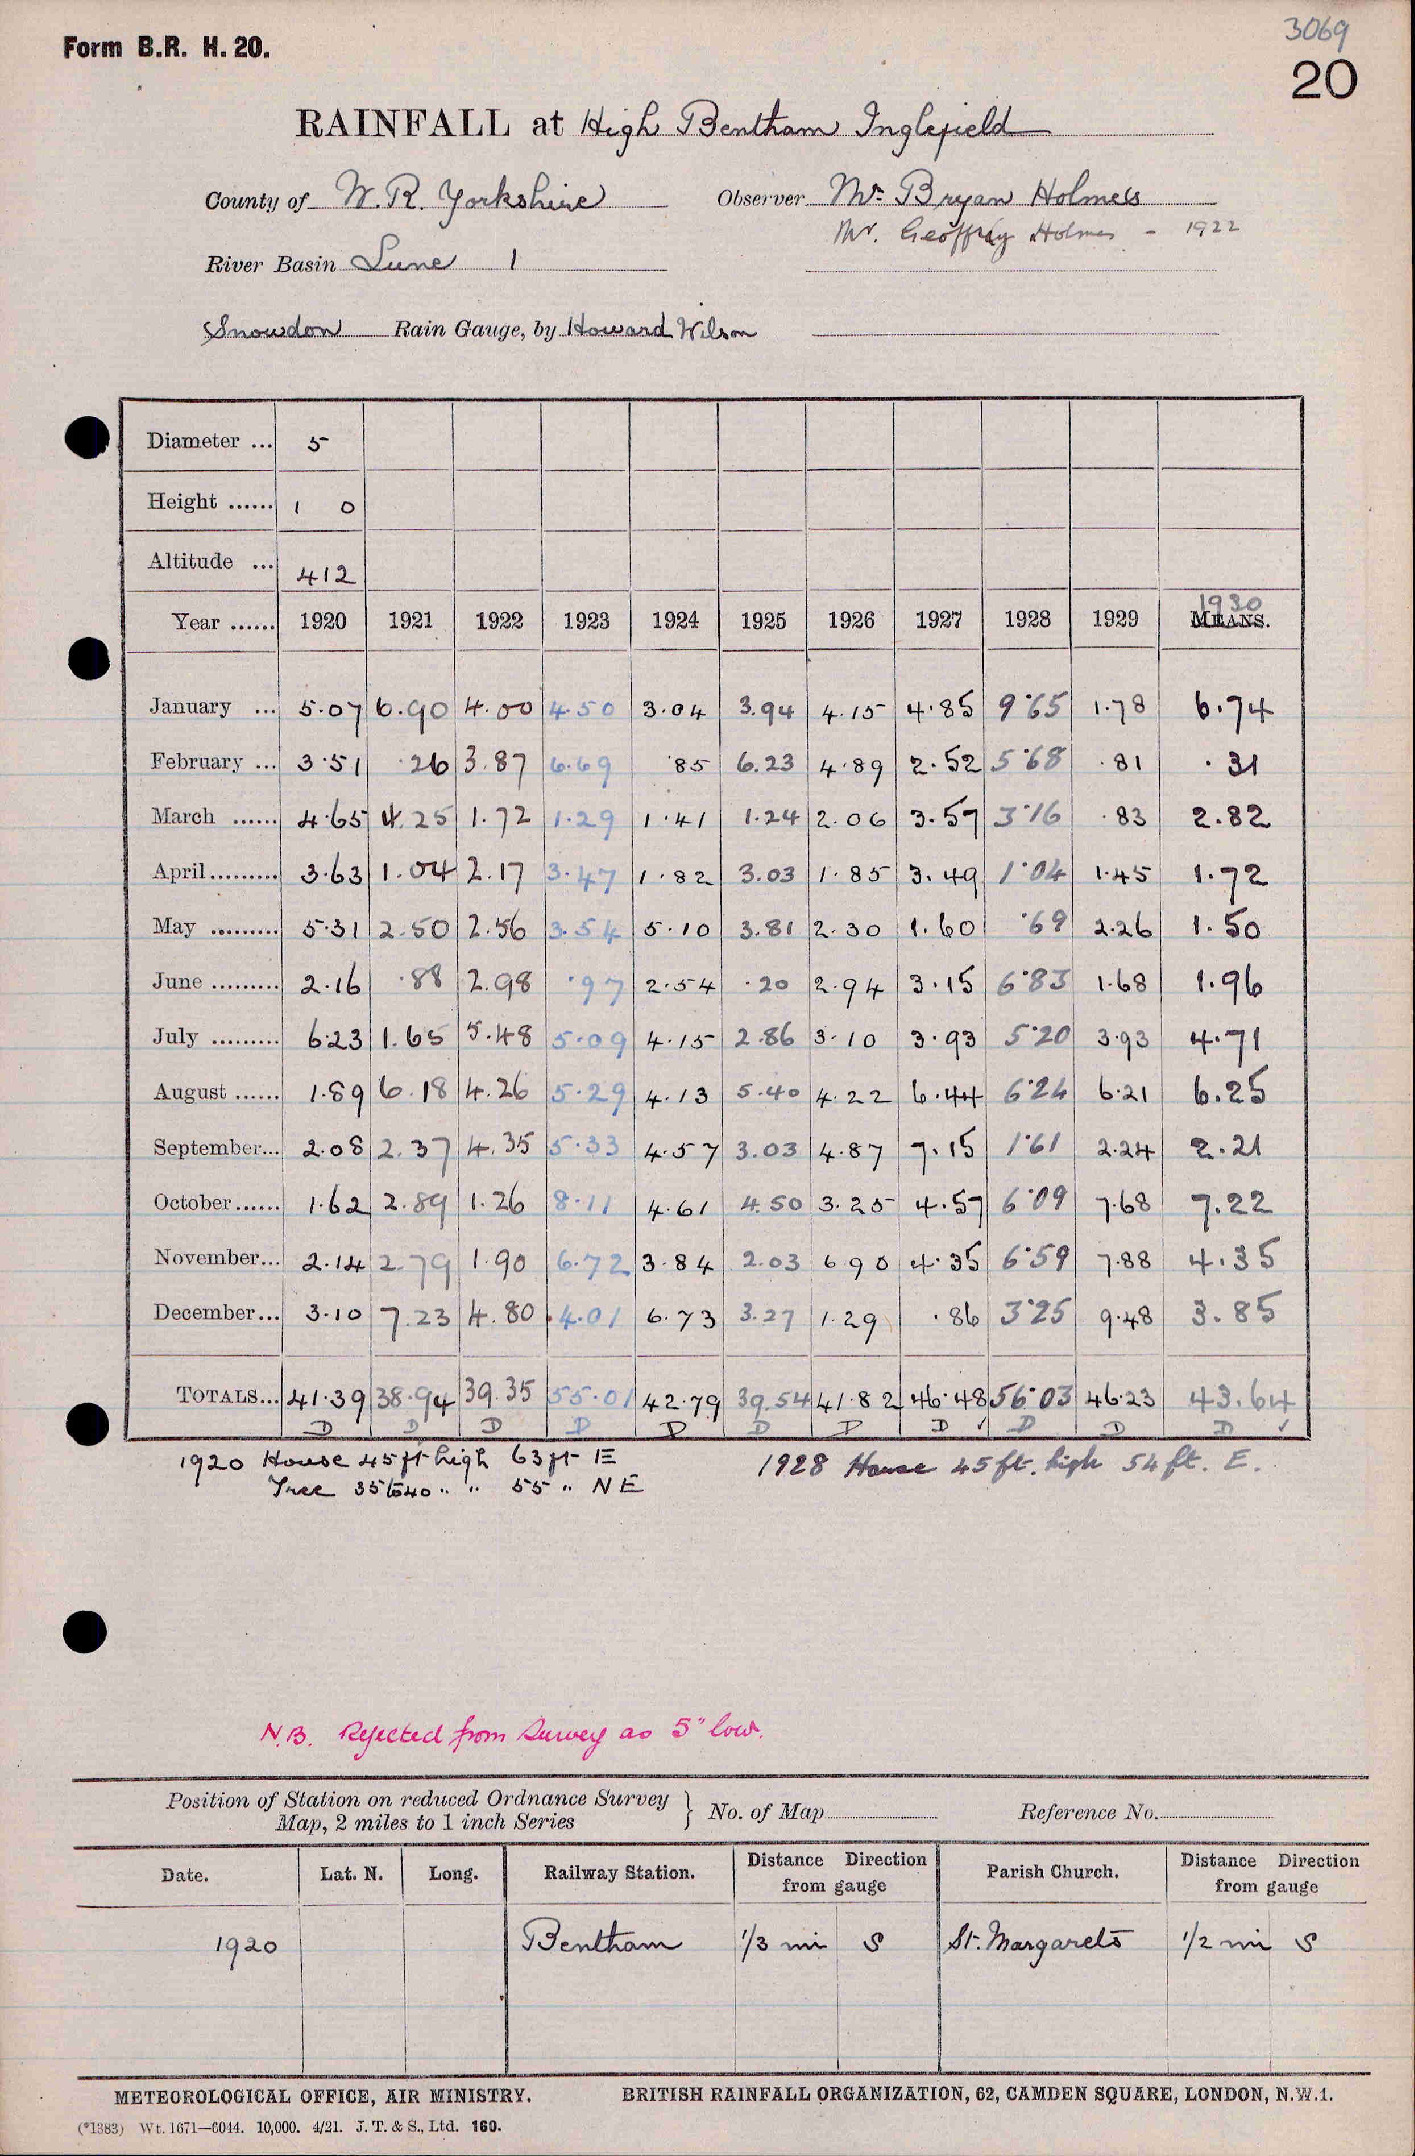 3069
Form B.R. H. 20.
20
RAINFALL at High Bentham Inglefield
County of W. R. Yorkshire Observer Mr. Bryan Holmes
Mr. Geoffrey Holmes - 1922
River Basin Lune 1
Snowdon Rain Gauge, by Howard Wilson
Diameter ... 5
Height ...... 1 0
Altitude ... 412
1930
Year ...... 1920 1921 1922 1923 1924 1925 1926 1927 1928 1929 MEANS.
January ... 5.07 6.90 4.00 4.50 3.04 3.94 4.15 4.85 9.65 1.78 6.74
February ... 3.51 .26 3.87 6.69 .85 6.23 4.89 2.52 5.68 .81 .31
March ...... 4.65 4.25 1.72 1.29 1.41 1.24 2.06 3.57 3.16 .83 2.82
April......... 3.63 1.04 2.17 3.47 1.82 3.03 1.85 3.49 1.04 1.45 1.72
May ......... 5.31 2.50 2.56 3.54 5.10 3.81 2.30 1.60 .69 2.26 1.50
June ......... 2.16 .88 2.98 .97 2.54 .20 2.94 3.15 6.83 1.68 1.96
July ......... 6.23 1.65 5.48 5.09 4.15 2.86 3.10 3.93 5.20 3.93 4.71
August ...... 1.89 6.18 4.26 5.29 4.13 5.40 4.22 6.44 6.24 6.21 6.25
September... 2.08 2.37 4.35 5.33 4.57 3.03 4.87 7.15 1.61 2.24 2.21
October...... 1.62 2.89 1.26 8.11 4.61 4.50 3.25 4.57 6.09 7.68 7.22
November... 2.14 2.79 1.90 6.72 3.84 2.03 6 90 4.35 6.59 7.88 4.35
December... 3.10 7.23 4.80 4.01 6.73 3.27 1.29 .86 3.25 9.48 3.85
TOTALS... 41.39 38.94 39.35 55.01 42.79 39.54 41.82 46.48 56.03 46.23 43.64
D D D D D D D D ✓ D D D ✓
1920 House 45 ft high 63 ft E 1928 House 45 ft. high 54 ft. E.
Tree 35 to 40 " " 55 " NE
N.B. Rejected from Survey as 5" low.
Position of Station on reduced Ordnance Survey
Map, 2 miles to 1 inch Series } No. of Map Reference No.
Date. Lat. N. Long. Railway Station. Distance Direction from gauge Parish Church. Distance Direction from gauge
1920 Bentham 1/3 mi S St. Margarets 1/2 mi S
METEOROLOGICAL OFFICE, AIR MINISTRY. BRITISH RAINFALL ORGANIZATION, 62, CAMDEN SQUARE, LONDON, N.W.1.
(*1383) Wt. 1671—6044. 10,000. 4/21. J. T. & S., Ltd. 160.